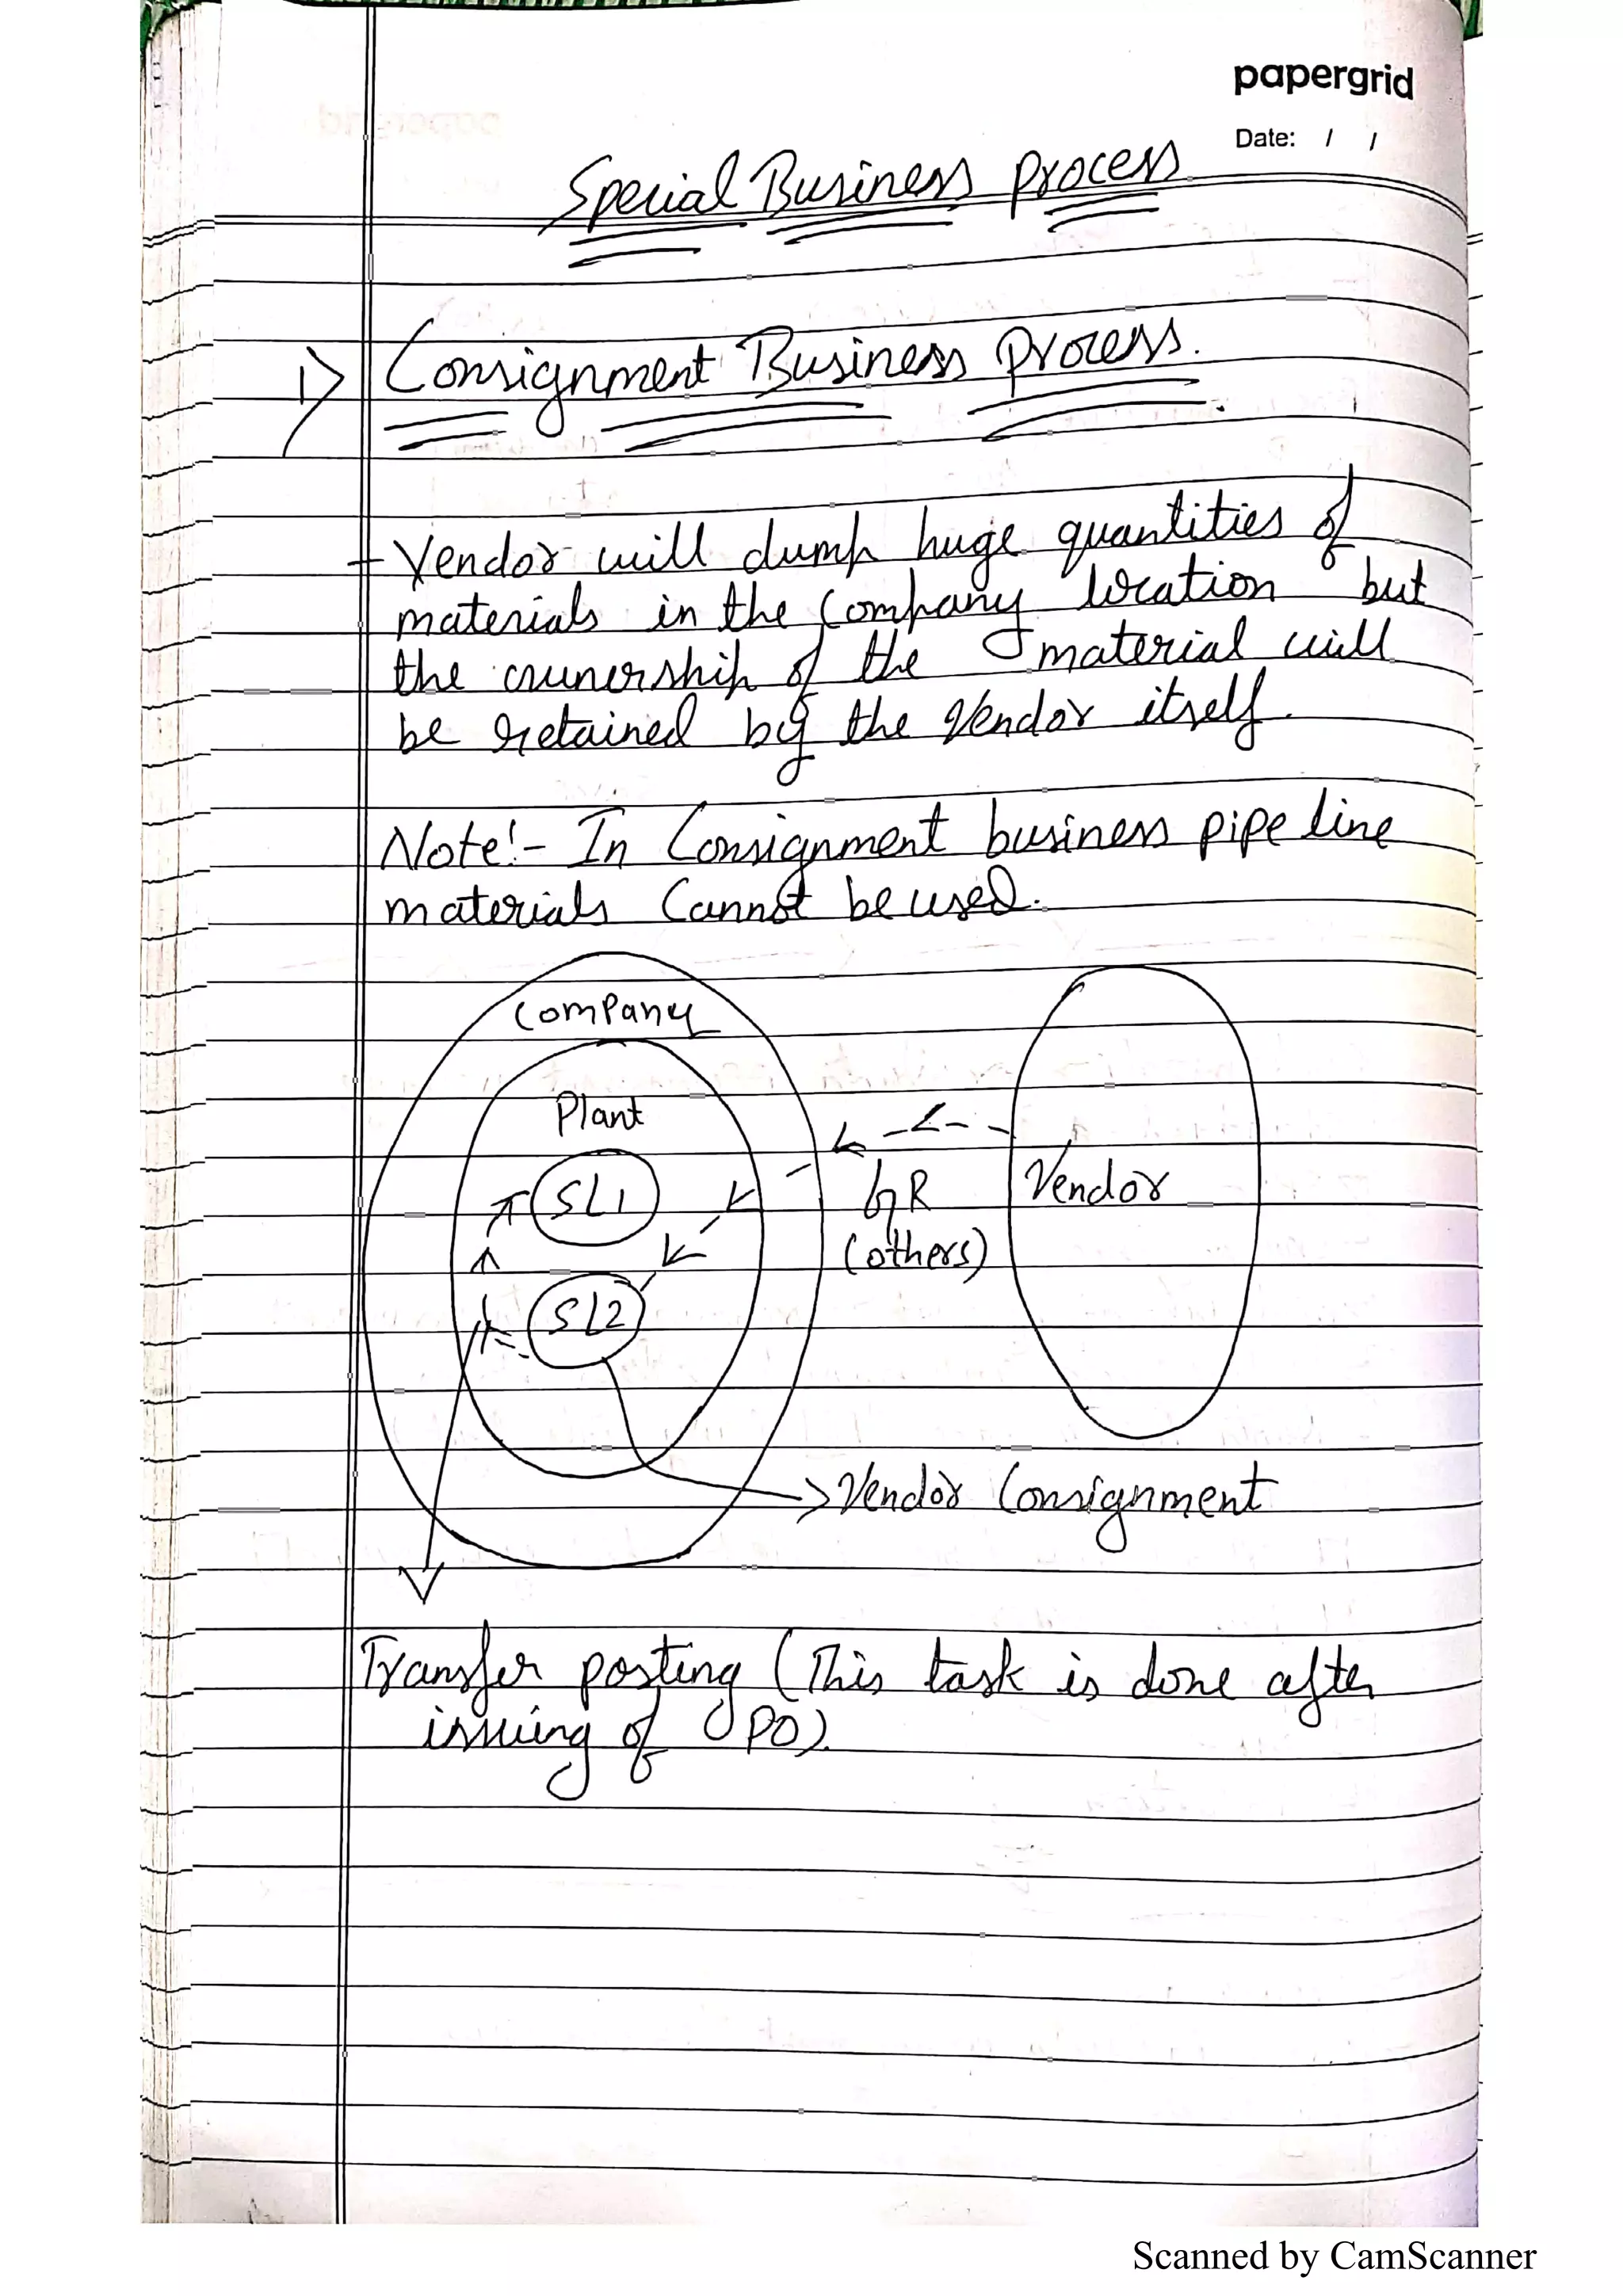 papergrid
Date: / /
Special Business process
1) Consignment Business process.
- Vendor will dump huge quantities of
materials in the Company location but
the ownership of the material will
be retained by the Vendor itself.
Note:- In Consignment business pipe line
materials Cannot be used.
Company
Plant
SL1
GR
Vendor
(others)
SL2
Vendor Consignment
Transfer posting (This task is done after
issuing of PO).
Scanned by CamScanner